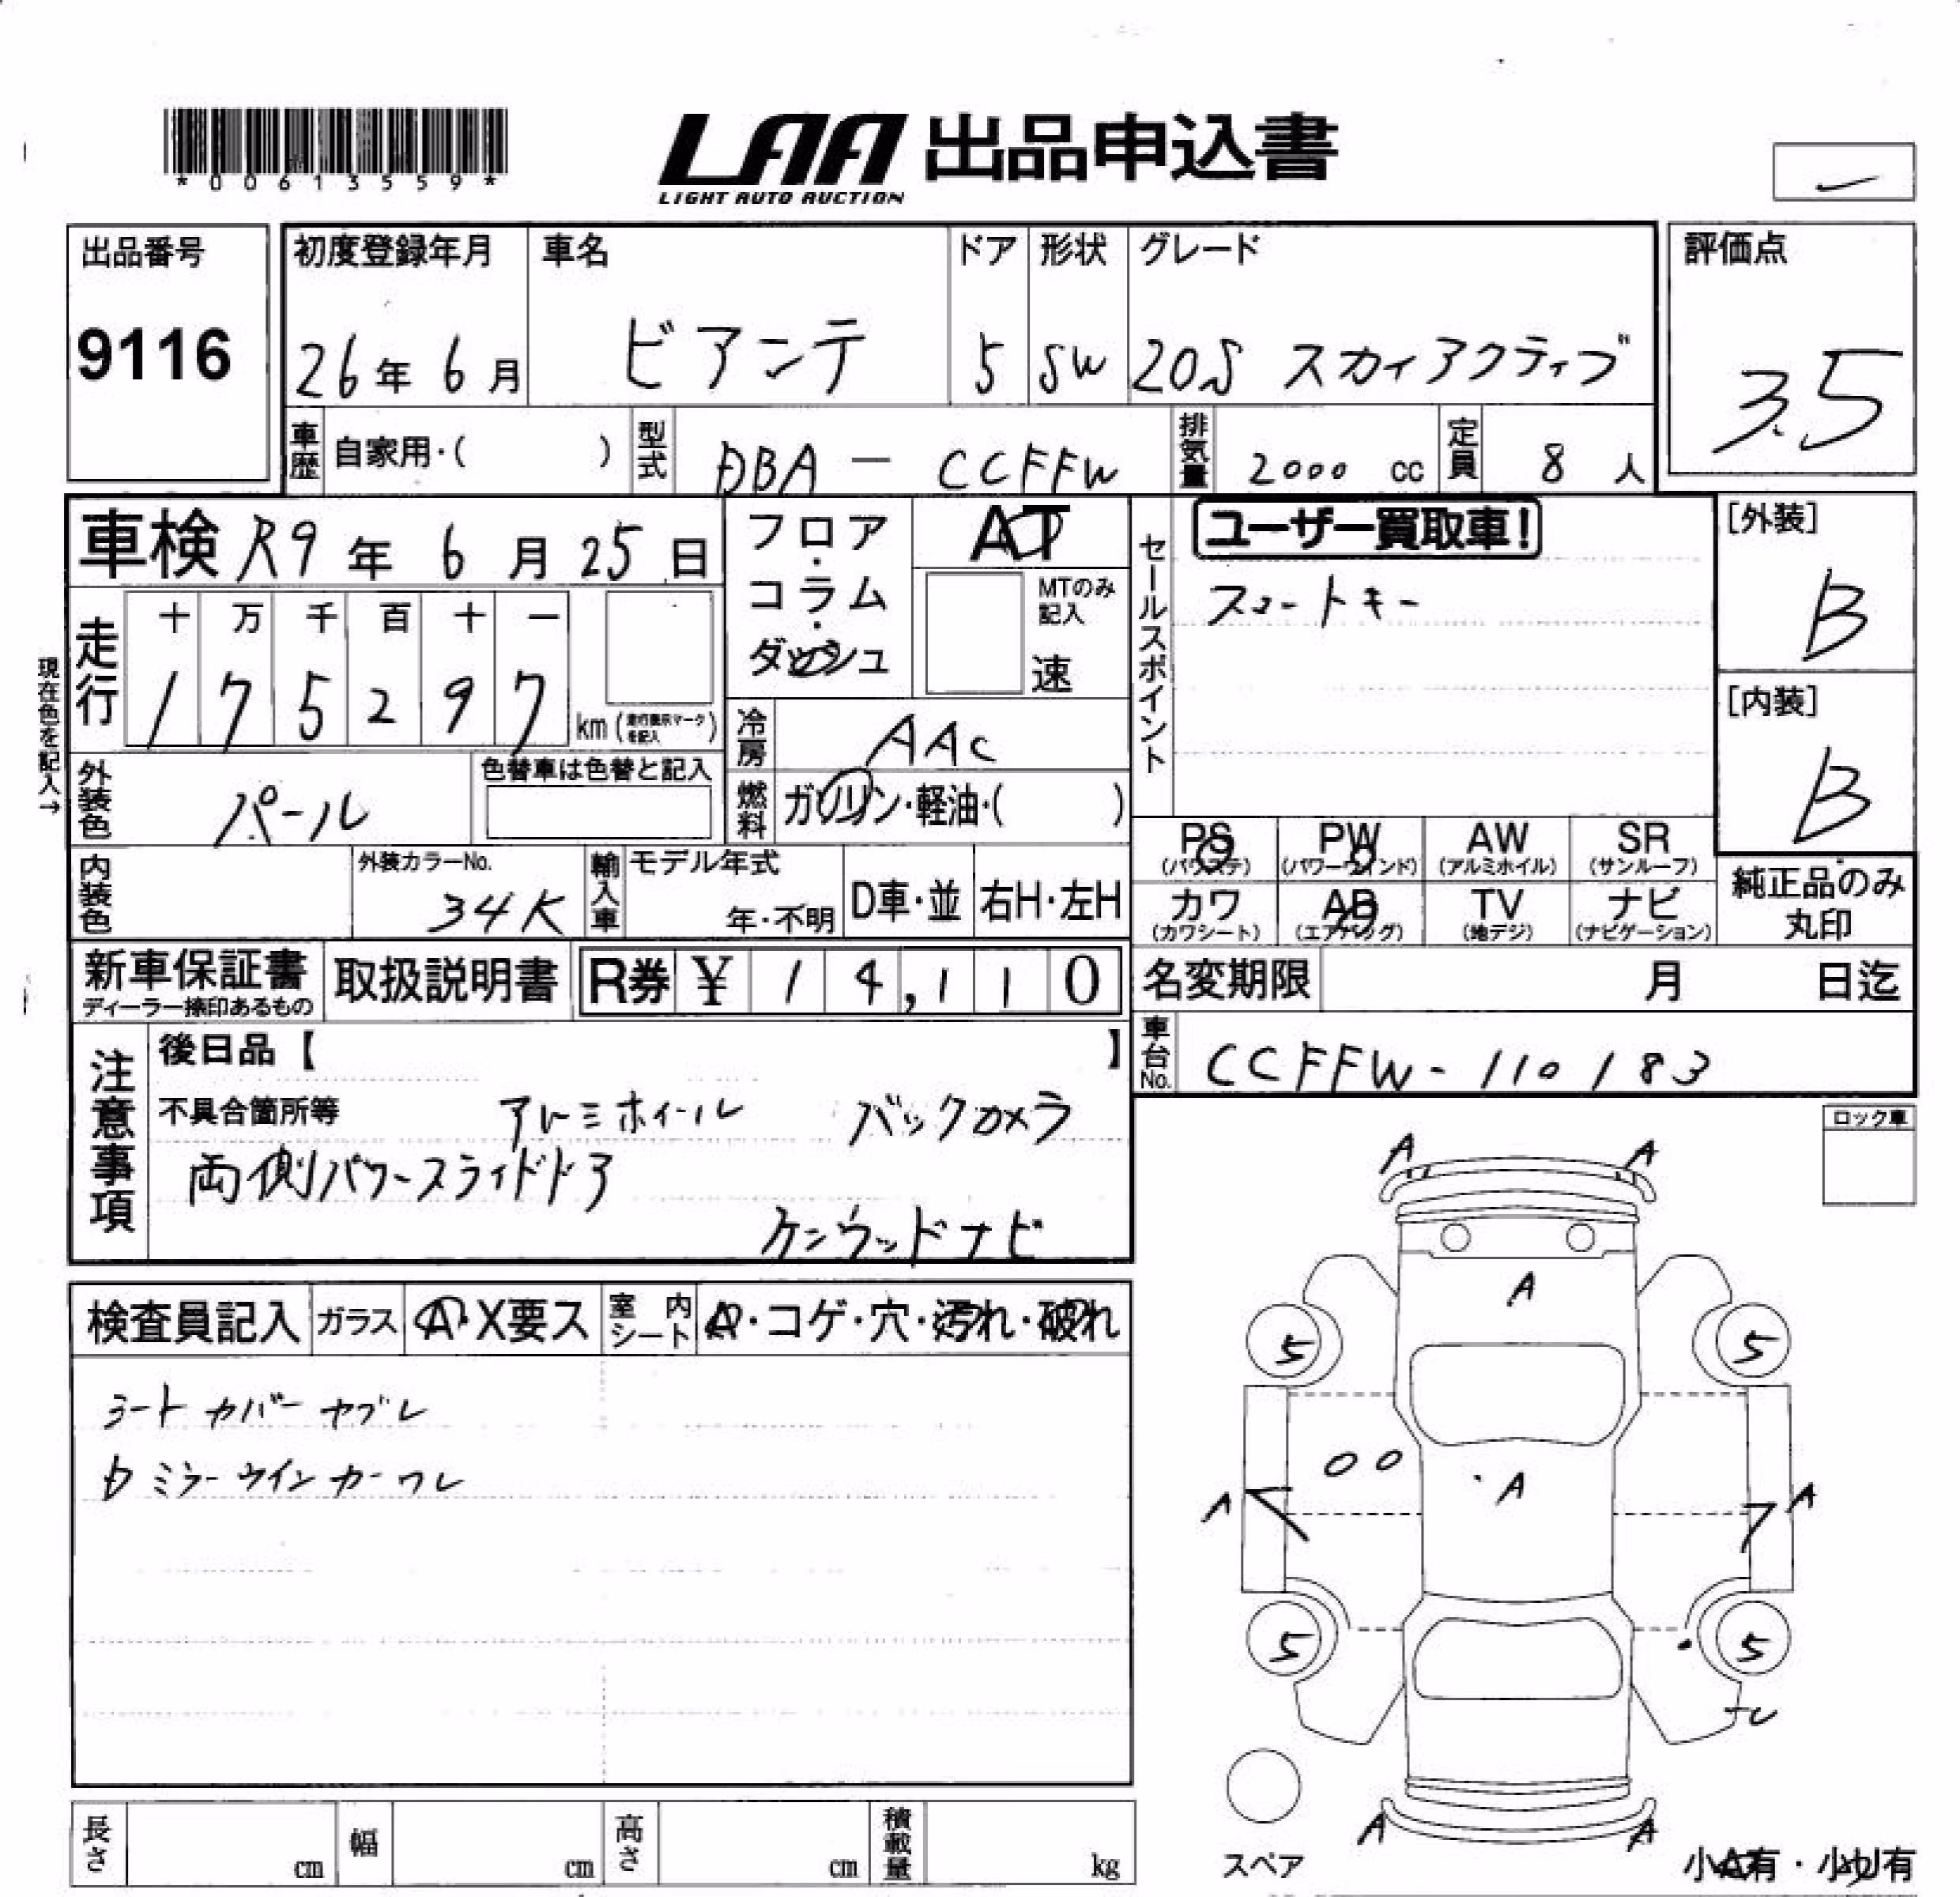 *00613559*
LAA 出品申込書
LIGHT AUTO AUCTION
出品番号
9116
初度登録年月 車名 ドア 形状 グレード
26年 6月 ビアンテ 5 SW 20S スカイアクティブ
評価点
3.5
車歴 自家用・( ) 型式 DBA - CCFFW 排気量 2000 cc 定員 8 人
車検 R9 年 6 月 25 日
フロア・コラム・ダッシュ
AT
MTのみ記入
速
セールスポイント
ユーザー買取車!
スマートキー
[外装]
B
[内装]
B
現在色を記入→
走行
十 万 千 百 十 一
1 7 5 2 9 7 km (走行表示マークを記入)
冷房 AAC
燃料 ガソリン・軽油・( )
外装色 パール
色替車は色替と記入
内装色
外装カラーNo.
34K
輸入車 モデル年式
年・不明
D車・並 右H・左H
PS (パワステ) PW (パワーウインド) AW (アルミホイル) SR (サンルーフ)
カワ (カワシート) AB (エアバッグ) TV (地デジ) ナビ (ナビゲーション)
純正品のみ丸印
新車保証書
ディーラー捺印あるもの
取扱説明書
R券 ¥ 14,110
名変期限 月 日迄
車台No. CCFFW-110183
注意事項
後日品【 】
不具合箇所等 アルミホイール バックカメラ
両側パワースライドドア
ケンウッドナビ
ロック車
検査員記入 ガラス A・X要ス 室内シート A・コゲ・穴・汚れ・破れ
シートカバーヤブレ
カミラーウインカーワレ
A A
A
5 5
A
A A
5 5
A A
スペア
小A有・小U有
長さ cm 幅 cm 高さ cm 積載量 kg